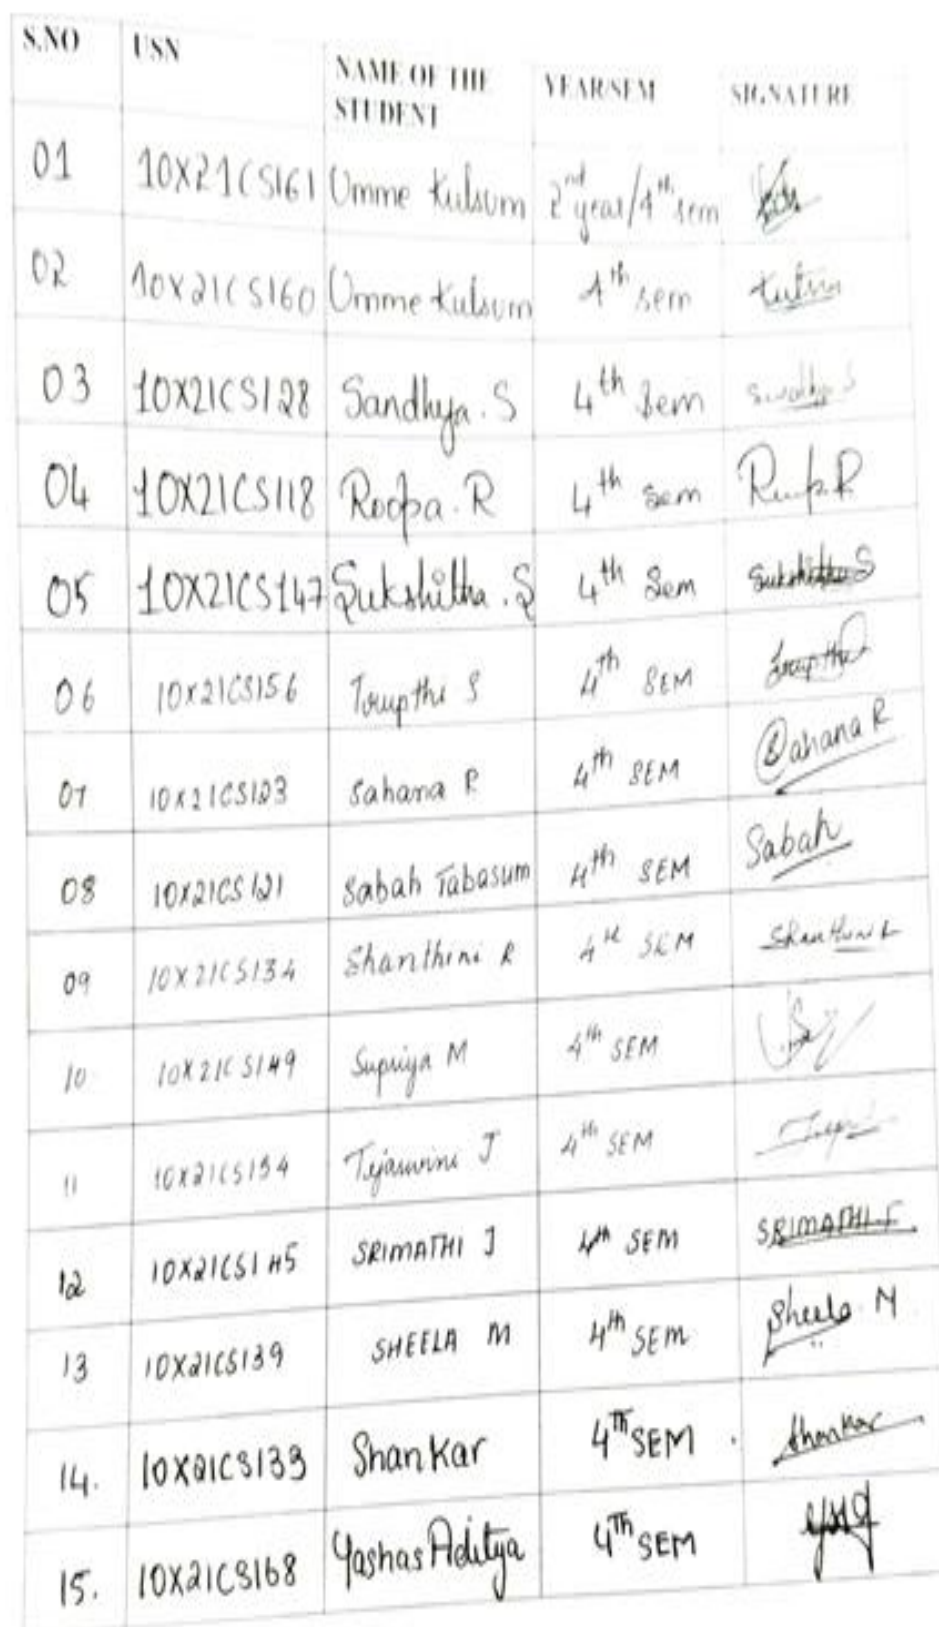 S.NO USN NAME OF THE STUDENT YEAR/SEM SIGNATURE
01 10X21CS161 Umme Kulsum 2nd year/4th sem
02 10X21CS160 Umme Kulsum 4th sem
03 10X21CS128 Sandhya. S 4th Sem
04 10X21CS118 Roopa. R 4th Sem
05 10X21CS147 Sukshitha. S 4th Sem Sukshitha S
06 10X21CS156 Trupthi S 4th SEM Trupthi
07 10X21CS123 Sahana R 4th SEM Sahana R
08 10X21CS121 Sabah Tabasum 4th SEM Sabah
09 10X21CS134 Shanthini R 4th SEM Shanthini R
10 10X21CS149 Supriya M 4th SEM
11 10X21CS154 Tejaswini J 4th SEM
12 10X21CS145 SRIMATHI J 4th SEM SRIMATHI J
13 10X21CS139 SHEELA M 4th SEM Sheela M
14. 10X21CS133 Shankar 4TH SEM. Shankar
15. 10X21CS168 Yashas Aditya 4TH SEM